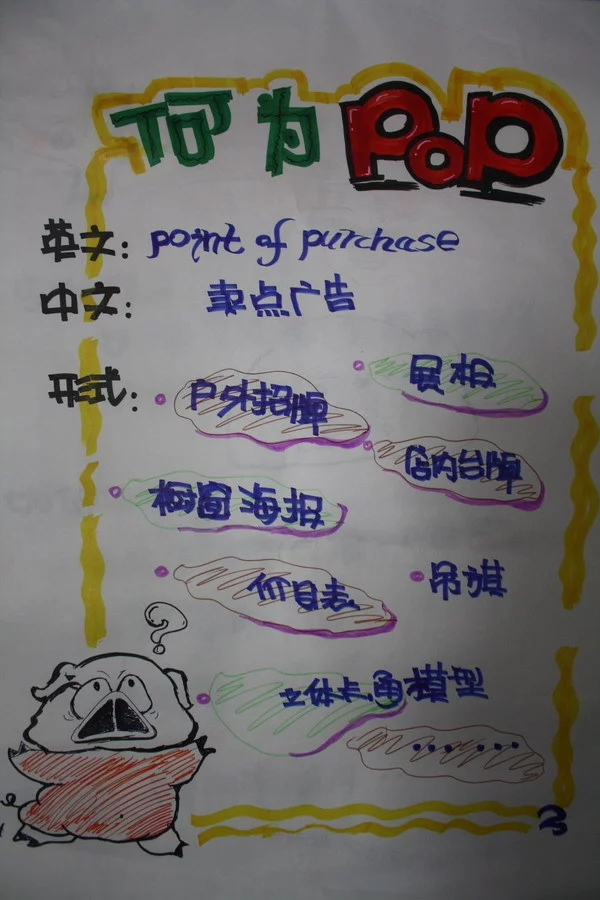 何为 POP
英文: point of purchase
中文: 卖点广告
形式:
户外招牌 展板
店内台牌
橱窗海报
价目表 吊旗
立体卡通模型
......
2
?